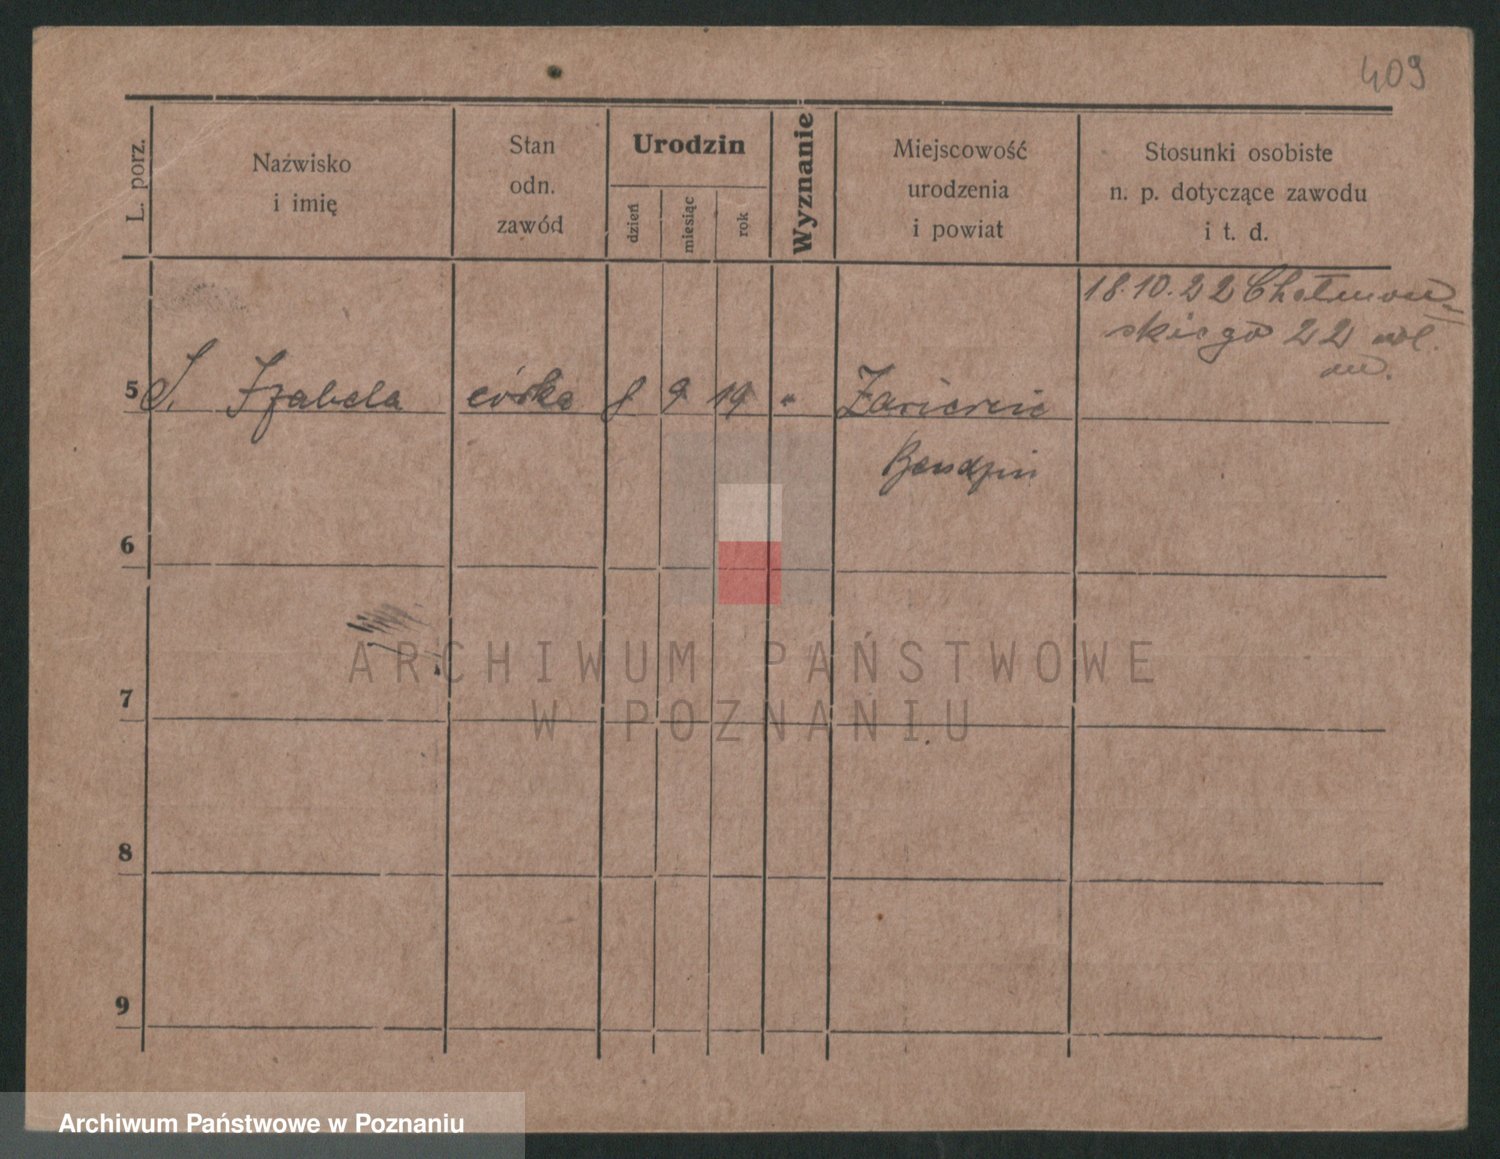 409
L. porz.
Nazwisko
i imię
Stan
odn.
zawód
Urodzin
dzień
miesiąc
rok
Wyznanie
Miejscowość
urodzenia
i powiat
Stosunki osobiste
n. p. dotyczące zawodu
i t. d.
18.10.22 Chełmoń-
skiego 22
5 S. Izabela córka 8 9 19 " Zawiercie
Bendzin
6
7
8
9
ARCHIWUM PAŃSTWOWE
W POZNANIU
Archiwum Państwowe w Poznaniu